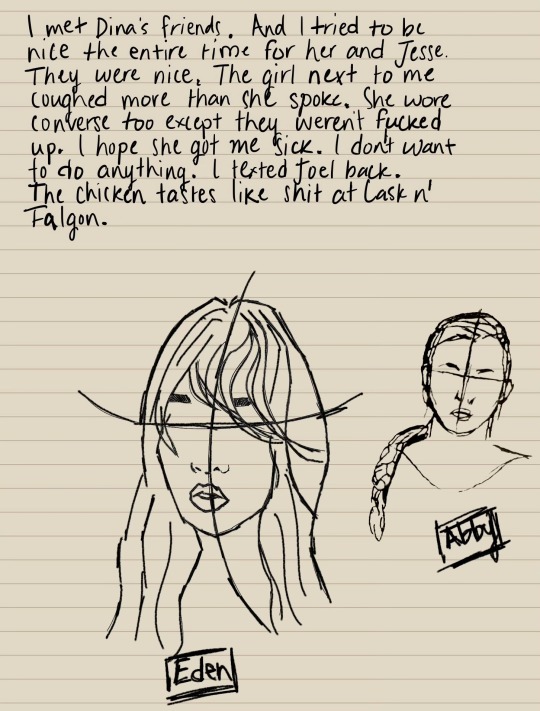 I met Dina's friends. And I tried to be
nice the entire time for her and Jesse.
They were nice. The girl next to me
coughed more than she spoke. She wore
converse too except they weren't fucked
up. I hope she got me sick. I don't want
to do anything. I texted Joel back.
The chicken tastes like shit at Cask n'
Falgon.
Abby
Eden